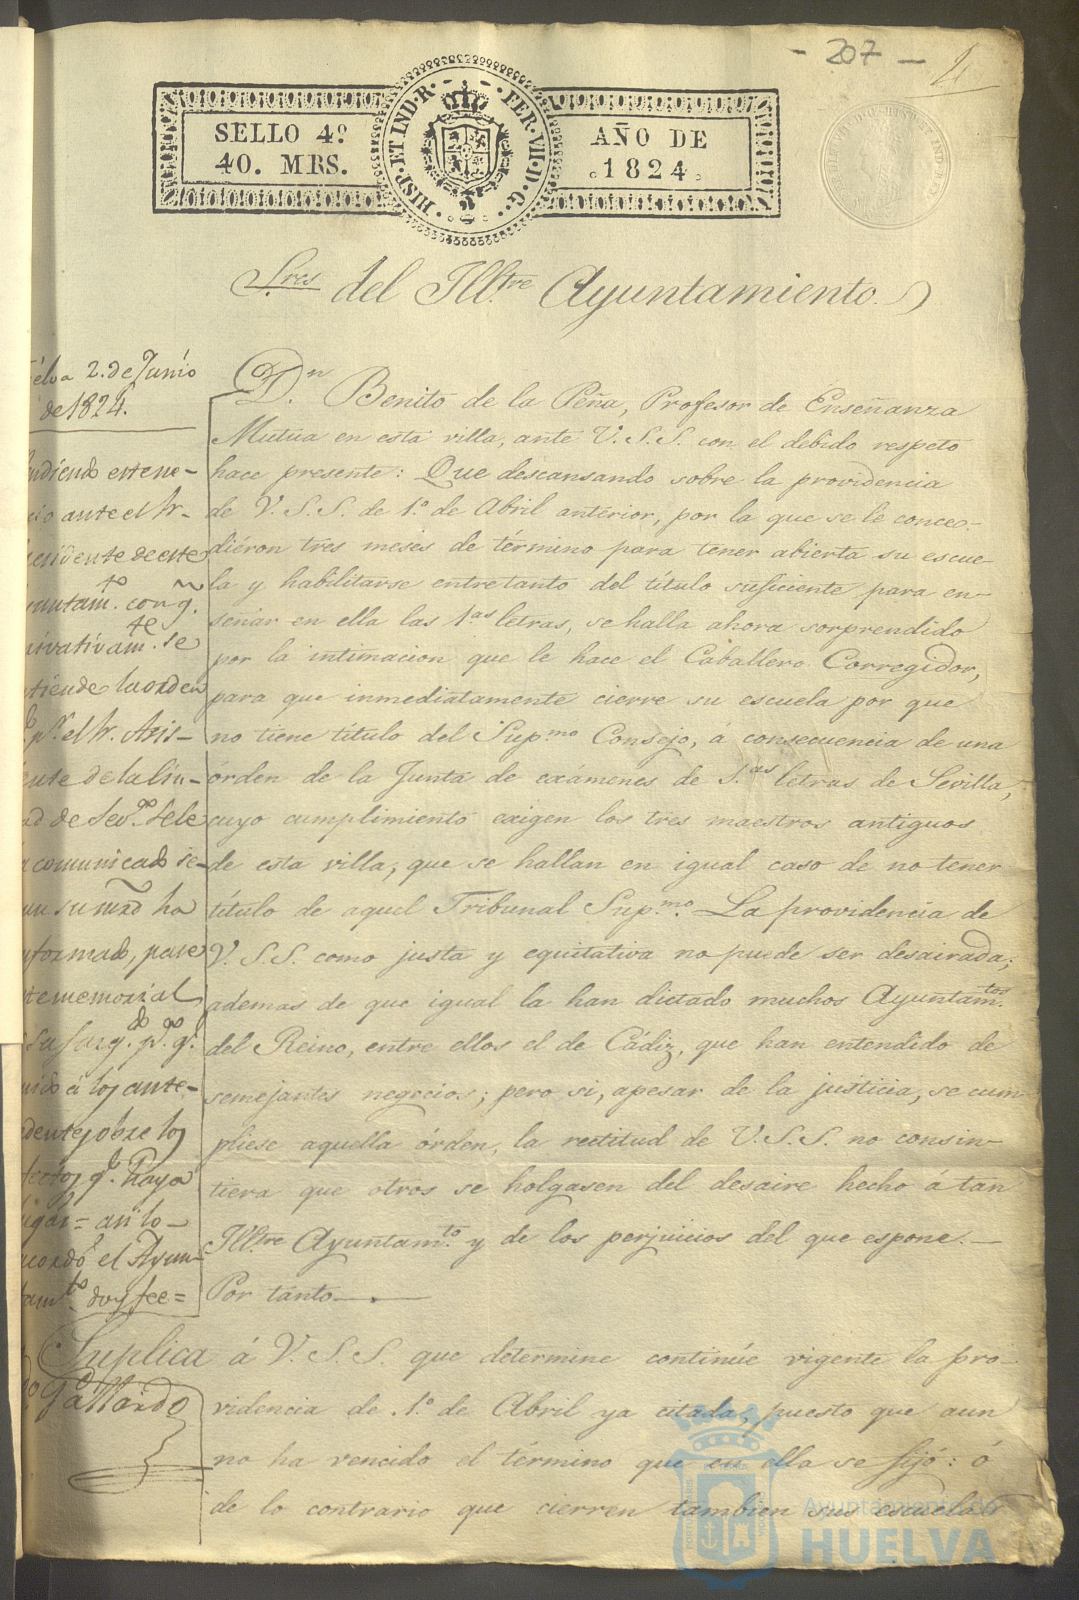 - 207 -
SELLO 4º
40. MRS.
HISP. ET IND. R. FER. VII. D. G.
AÑO DE
1824
Sres del Illtre Ayuntamiento.
Dn. Benito de la Peña, Profesor de Enseñanza
Mutua en esta villa, ante V. S. S. con el debido respeto
hace presente: Que descansando sobre la providencia
de V. S. S. de 1.º de Abril anterior, por la que se le conce-
diéron tres meses de término para tener abierta su escue-
la y habilitarse entretanto del título suficiente para en-
señar en ella las 1.as letras, se halla ahora sorprendido
por la intimacion que le hace el Caballero Corregidor,
para que inmediatamente cierre su escuela por que
no tiene título del Supmo. Consejo, á consecuencia de una
órden de la Junta de exámenes de 1.as letras de Sevilla,
cuyo cumplimiento exigen los tres maestros antiguos
de esta villa, que se hallan en igual caso de no tener
título de aquel Tribunal Supmo. La providencia de
V. S. S. como justa y equitativa no puede ser desairada;
ademas de que igual la han dictado muchos Ayuntam.tos
del Reino, entre ellos el de Cádiz, que han entendido de
semejantes negocios; pero si, apesar de la justicia, se cum-
pliese aquella órden, la rectitud de V. S. S. no consin-
tiera que otros se holgasen del desaire hecho á tan
Illtre Ayuntam.to y de los perjuicios del que espone.—
Por tanto—.—
Suplica á V. S. S. que determine continúe vigente la pro-
videncia de 1.º de Abril ya citada, puesto que aun
no ha vencido el término que en ella se fijó: ó
de lo contrario que cierren tambien sus escuelas
elva 2. de Junio
de 1824.
ndiendo este ne-
cio ante el Sr.
esidente de este
untam.to con q.
ivativam.te se
tiende la orden
q.e p.r el Sr. Asis-
ente de la Ciu-
ad de Sev.a se le
a comunicado se-
un su mrd ha
nformado, pase
te memorial
uido á los ante-
dentes sobre los
fectos q.e haya
ugar = asi lo
acordó el Ayun-
tam.to doy fee =
Gallardo
Ayuntamiento de
HUELVA